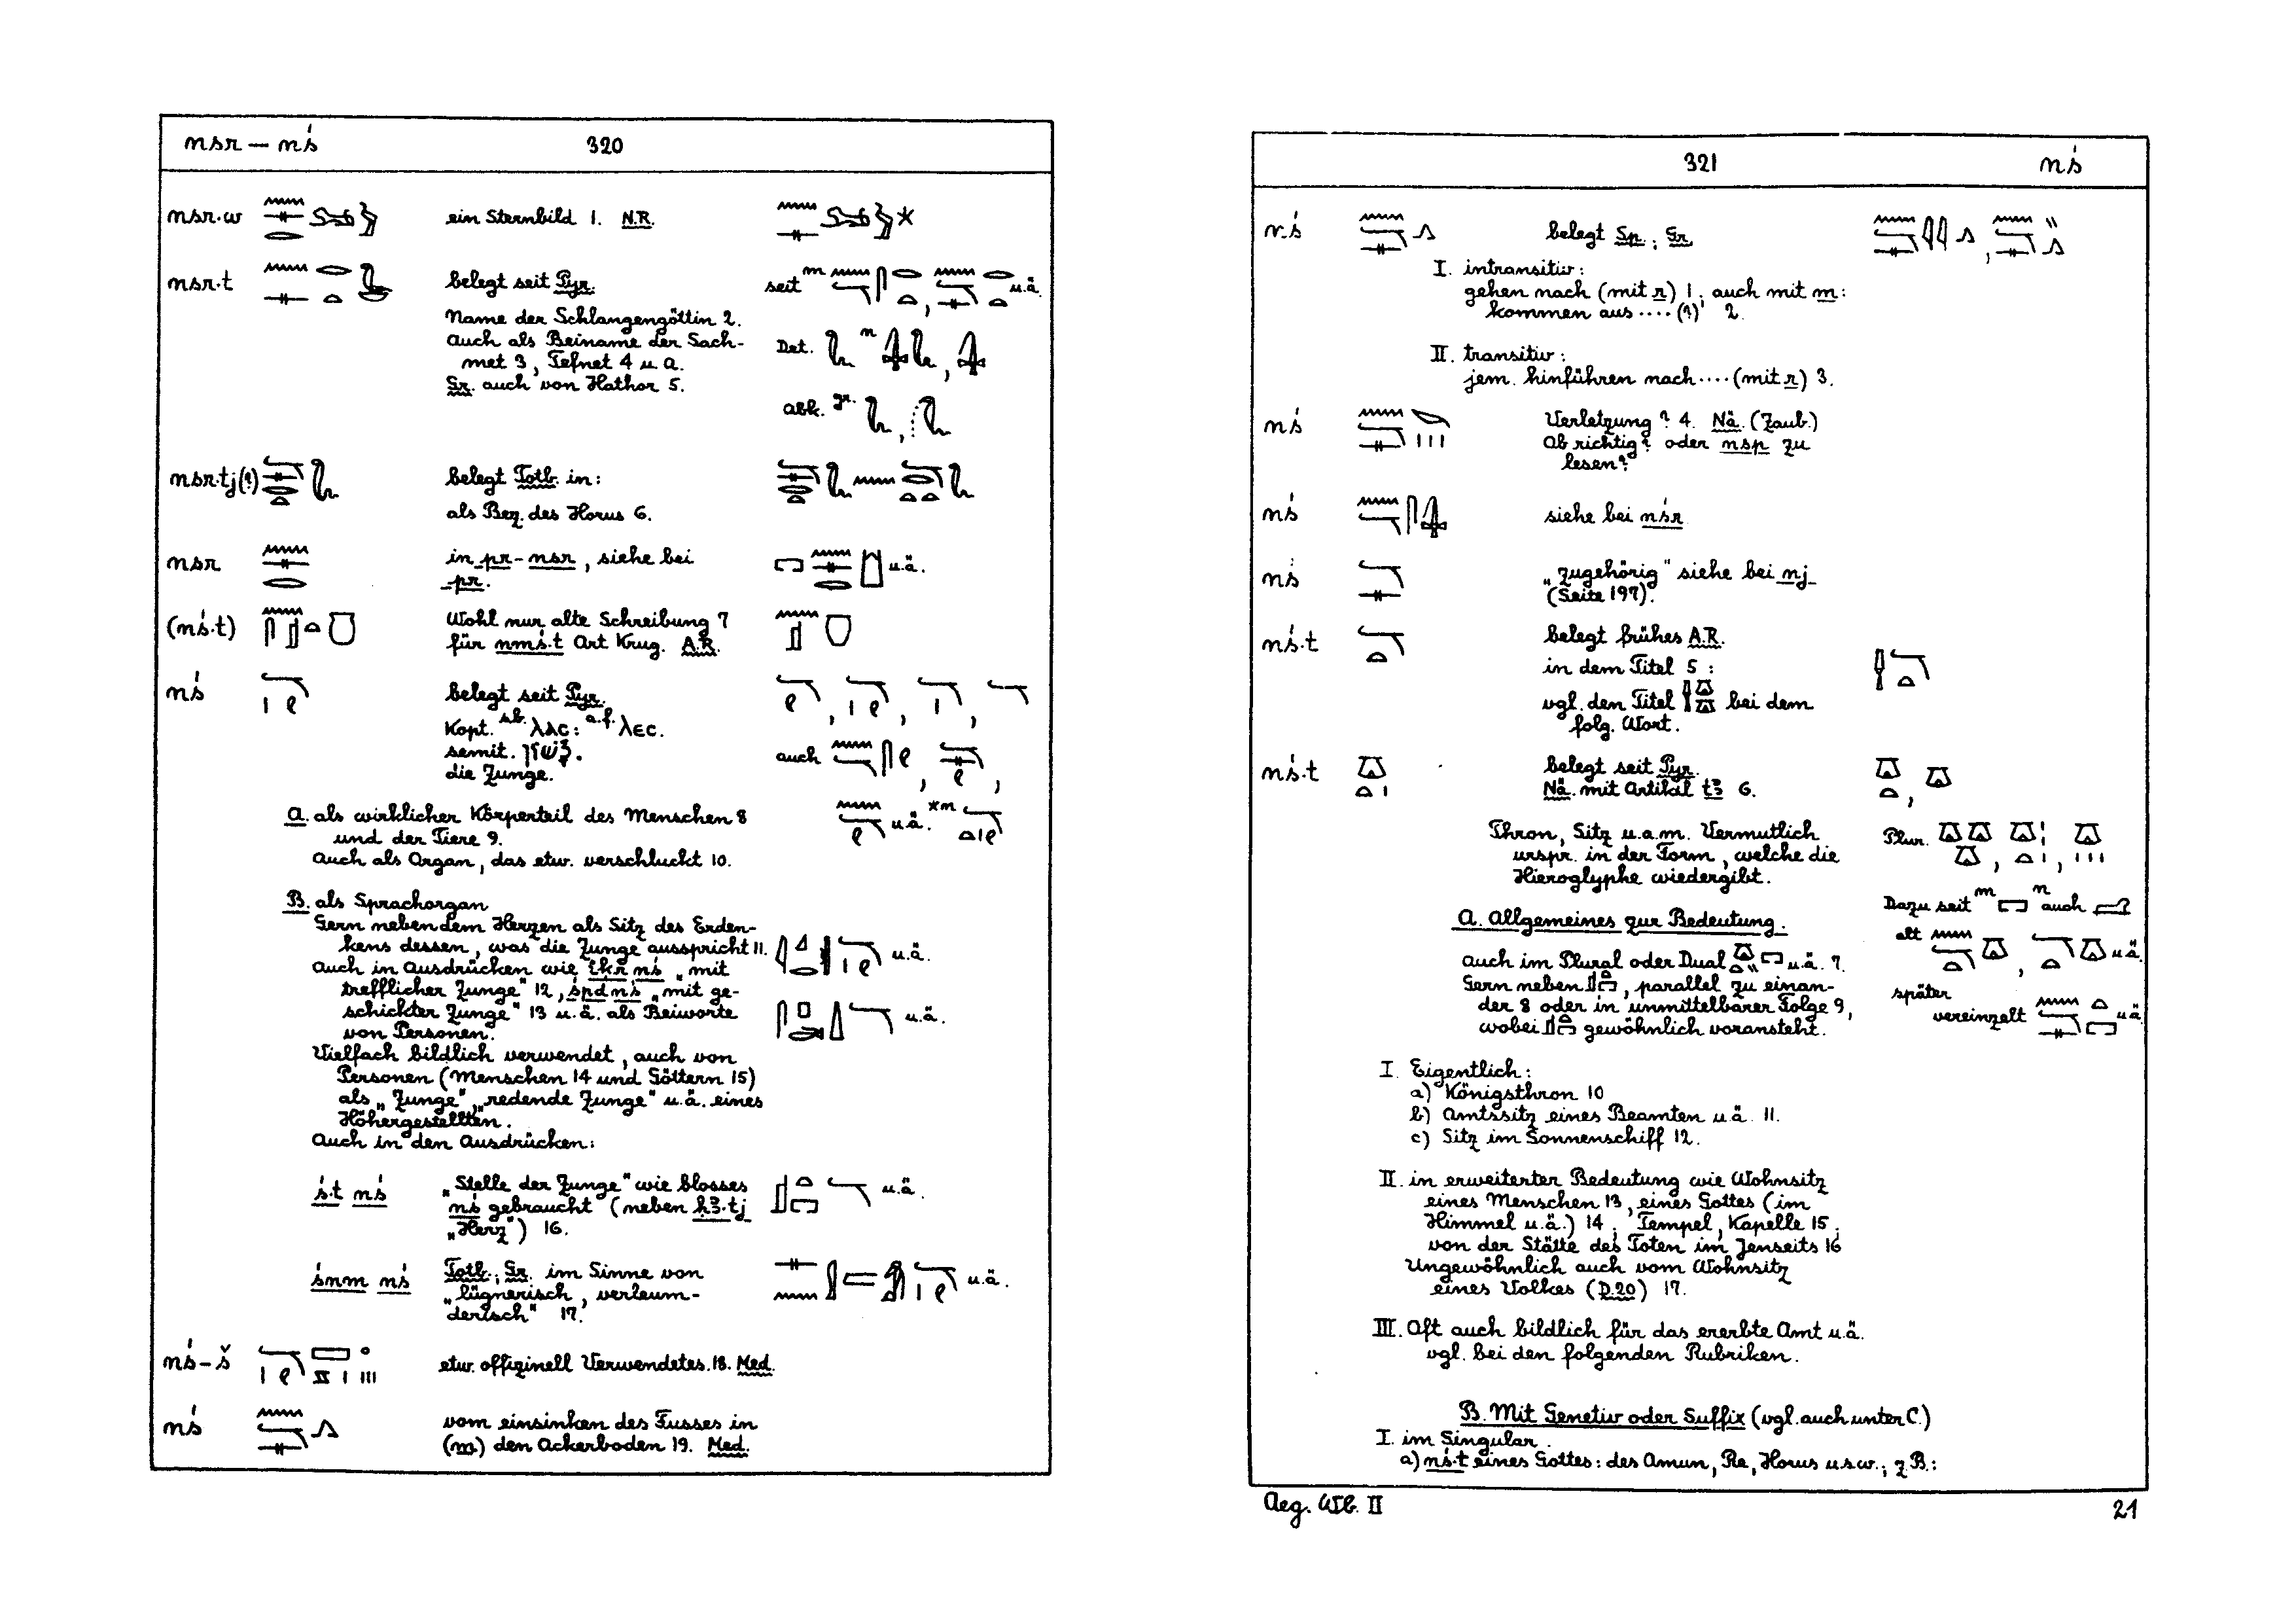 nsr — nś 320
nsr·w ein Sternbild 1. N.R.
nsr·t belegt seit Pyr. seit m u.ä.
Name der Schlangengöttin 2.
auch als Beiname der Sach- Det. n
met 3, Tefnet 4 u. a.
Gr. auch von Hathor 5.
abk. gr.
nsr·tj(?) belegt Totb. in:
als Bez. des Horus 6.
nsr in pr-nsr, siehe bei u.ä.
pr.
(nś·t) Wohl nur alte Schreibung 7
für nmś·t Art Krug. A.R.
nś belegt seit Pyr.
Kopt. sb. ⲗⲁⲥ: a.f. ⲗⲉⲥ.
semit. לשן.
die Zunge. auch
A. als wirklicher Körperteil des Menschen 8
und der Tiere 9. u.ä. *m
Auch als Organ, das etw. verschluckt 10.
B. als Sprachorgan
Gern neben dem Herzen als Sitz des Erden-
kens dessen, was die Zunge ausspricht 11. u.ä.
auch in Ausdrücken wie ỉḳr nś „mit
trefflicher Zunge" 12, śpd nś „mit ge-
schickter Zunge" 13 u.ä. als Beiworte u.ä.
von Personen.
Vielfach bildlich verwendet, auch von
Personen (Menschen 14 und Göttern 15)
als „Zunge", „redende Zunge" u.ä. eines
Höhergestellten.
Auch in den Ausdrücken:
ś·t nś „Stelle der Zunge" wie blosses u.ä.
nś gebraucht (neben ḥꜣ·tj
„Herz") 16.
śnm nś Totb.; Gr. im Sinne von u.ä.
„lügnerisch, verleum-
derisch" 17.
nś-š etw. offizinell Verwendetes. 18. Med.
nś vom einsinken des Fusses in
(m) den Ackerboden 19. Med.
321 nś
nś belegt Sp.; Gr.
I. intransitiv:
gehen nach (mit r) 1. auch mit m:
kommen aus ···· (?) 2.
II. transitiv:
jem. hinführen nach ···· (mit r) 3.
nś Verletzung? 4. Nä. (Zaub.)
Ob richtig? oder nsp zu
lesen?
nś siehe bei nśr
nś „zugehörig" siehe bei nj
(Seite 197).
nś·t belegt frühes A.R.
in dem Titel 5:
vgl. den Titel bei dem
folg. Wort.
nś·t belegt seit Pyr.
Nä. mit Artikel tꜣ 6.
Thron, Sitz u.a.m. Vermutlich Plur.
urspr. in der Form, welche die
Hieroglyphe wiedergibt.
Dazu seit m n auch
A. Allgemeines zur Bedeutung.
alt u.ä.
auch im Plural oder Dual u.ä. 7.
Gern neben, parallel zu einan-
der 8 oder in unmittelbarer Folge 9, später
wobei gewöhnlich voransteht. vereinzelt u.ä.
I. Eigentlich:
a) Königsthron 10
b) Amtssitz eines Beamten u.ä. 11.
c) Sitz im Sonnenschiff 12.
II. in erweiterter Bedeutung wie Wohnsitz
eines Menschen 13, eines Gottes (im
Himmel u.ä.) 14; Tempel, Kapelle 15;
von der Stätte des Toten im Jenseits 16
Ungewöhnlich auch vom Wohnsitz
eines Volkes (D.20) 17.
III. Oft auch bildlich für das ererbte Amt u.ä.
vgl. bei den folgenden Rubriken.
B. Mit Genetiv oder Suffix (vgl. auch unter C.)
I. im Singular.
a) nś·t eines Gottes: des Amun, Re, Horus u.s.w.; z.B.:
Aeg. Wb. II 21